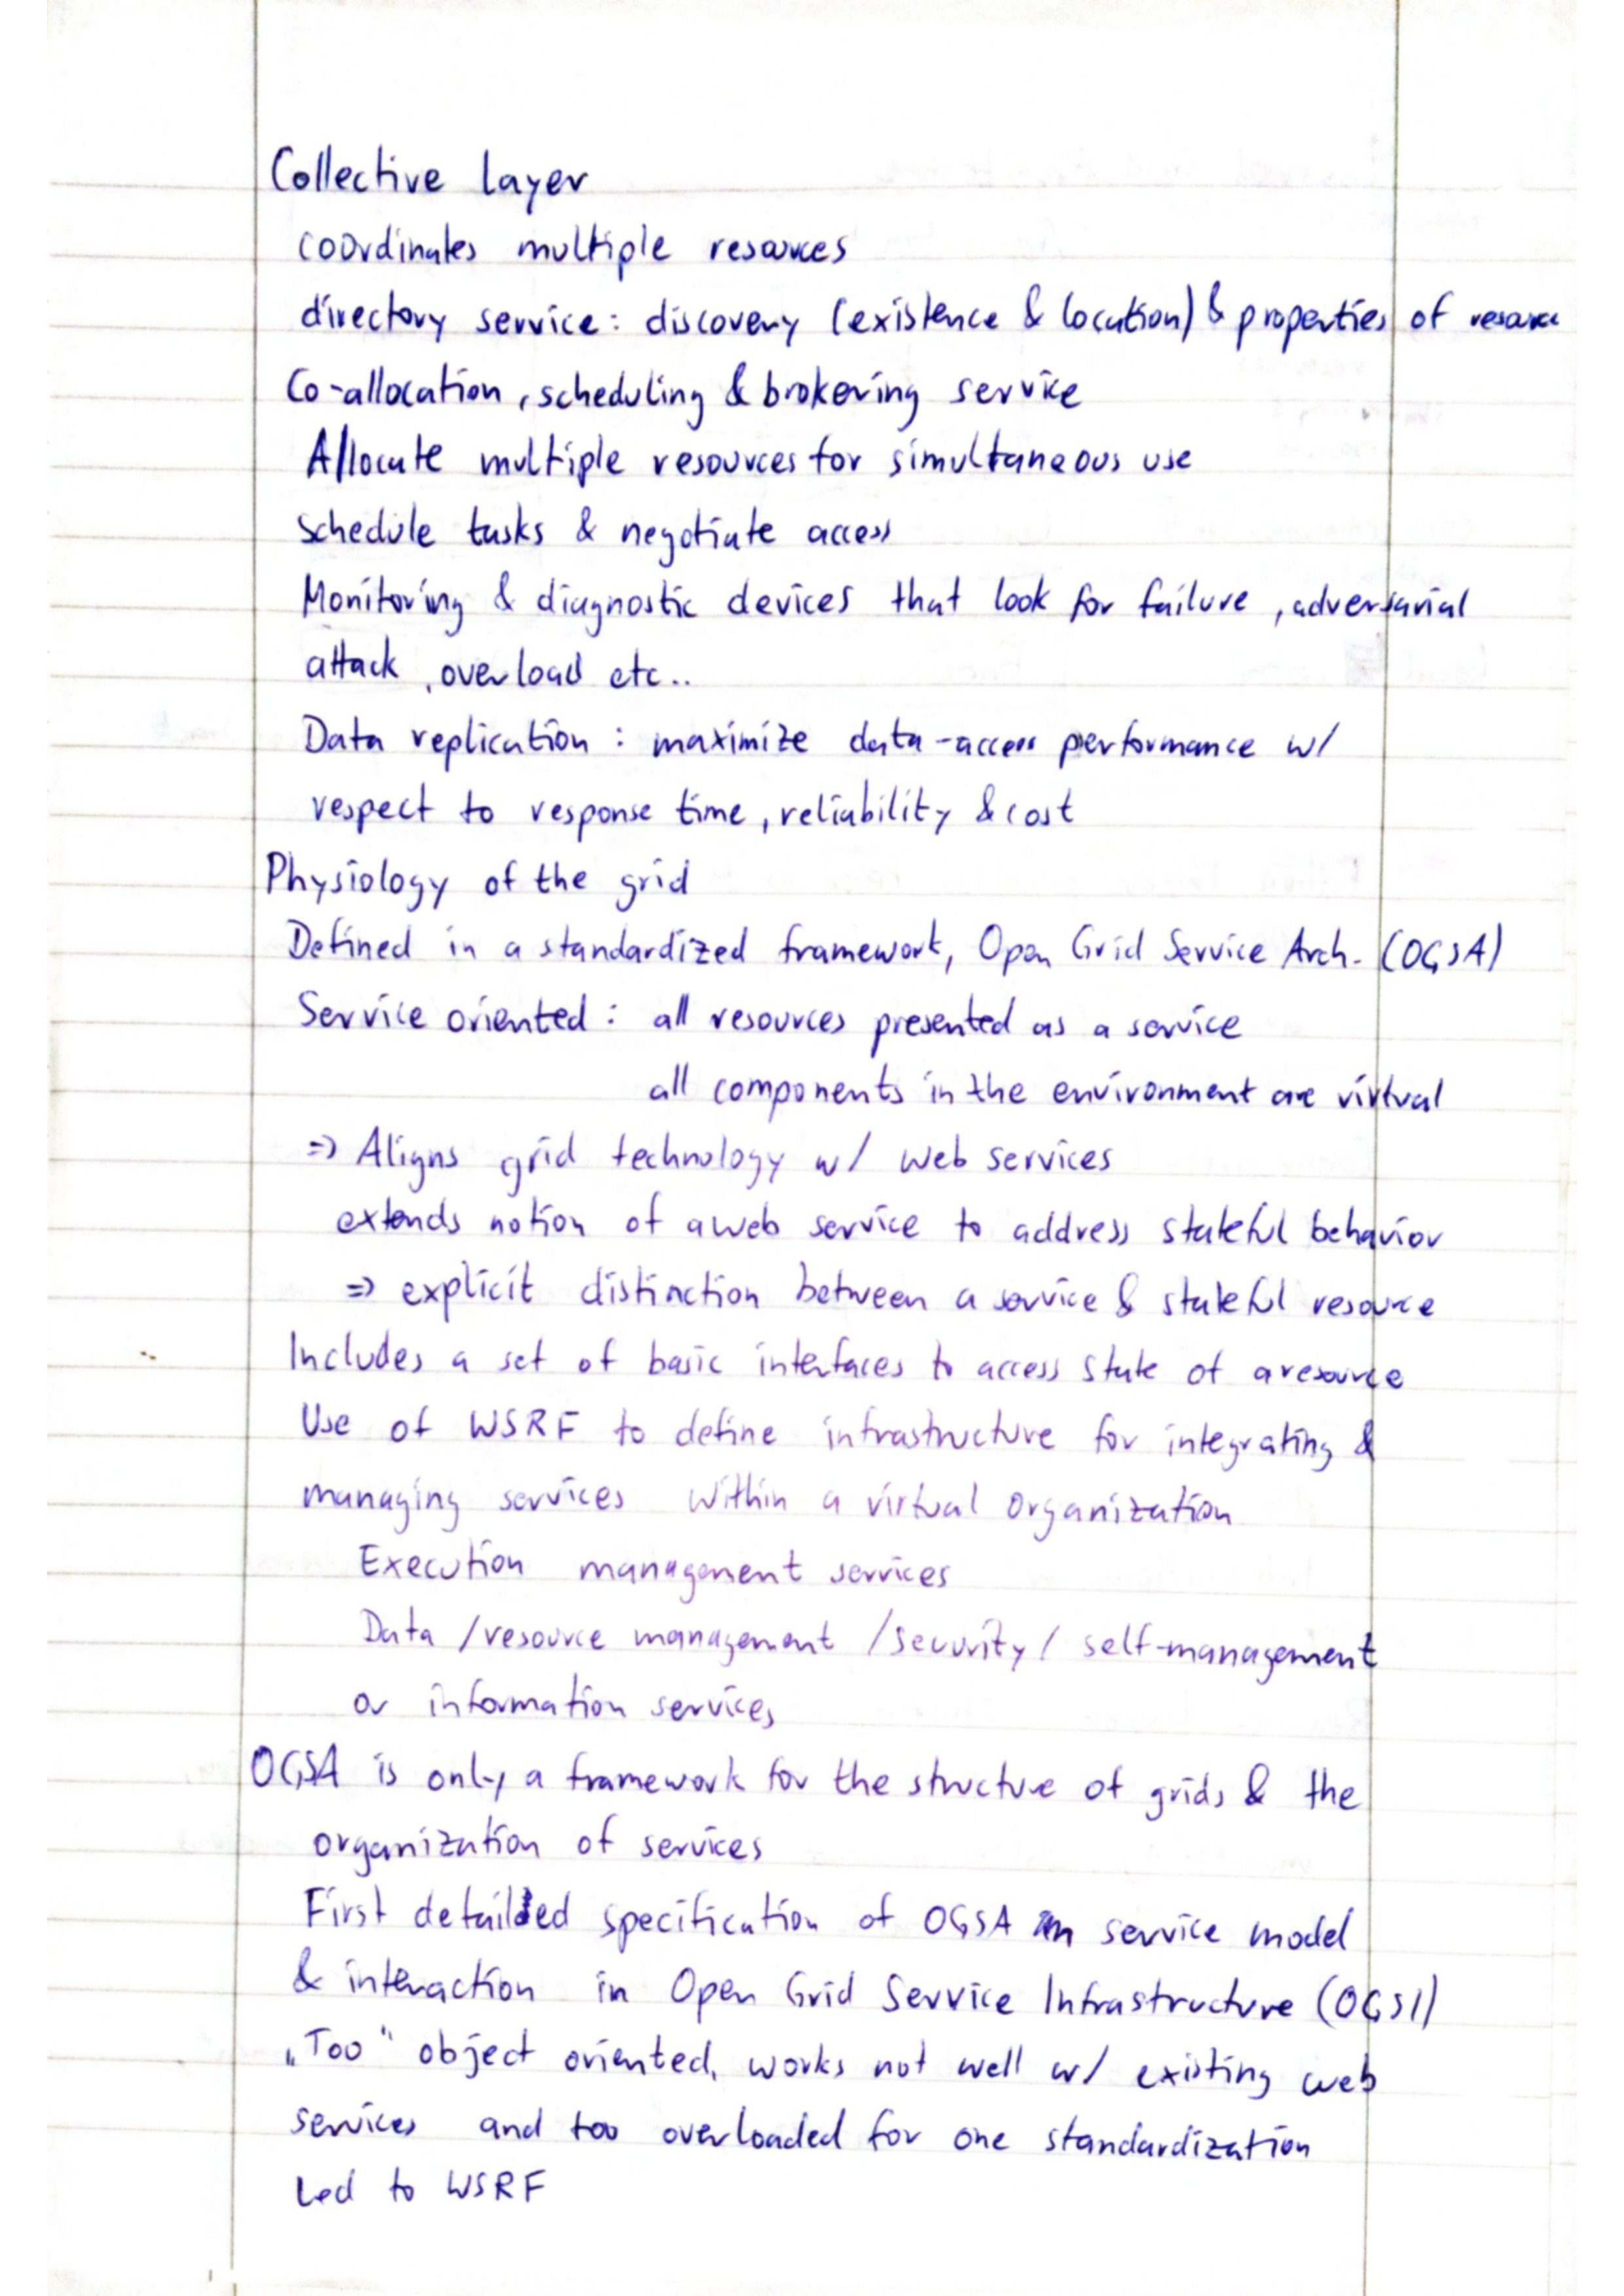 Collective layer
coordinates multiple resources
directory service: discovery (existence & location) & properties of resource
Co-allocation, scheduling & brokering service
Allocate multiple resources for simultaneous use
Schedule tasks & negotiate access
Monitoring & diagnostic devices that look for failure, adversarial
attack, overload etc..
Data replication: maximize data-access performance w/
respect to response time, reliability & cost
Physiology of the grid
Defined in a standardized framework, Open Grid Service Arch. (OGSA)
Service oriented: all resources presented as a service
all components in the environment are virtual
=> Aligns grid technology w/ web services
extends notion of a web service to address stateful behavior
=> explicit distinction between a service & stateful resource
Includes a set of basic interfaces to access state of a resource
Use of WSRF to define infrastructure for integrating &
managing services within a virtual organization
Execution management services
Data /resource management /security/ self-management
or information services
OGSA is only a framework for the structure of grids & the
organization of services
First detailed specification of OGSA in service model
& interaction in Open Grid Service Infrastructure (OGSI)
„Too“ object oriented, works not well w/ existing web
services and too overloaded for one standardization
Led to WSRF